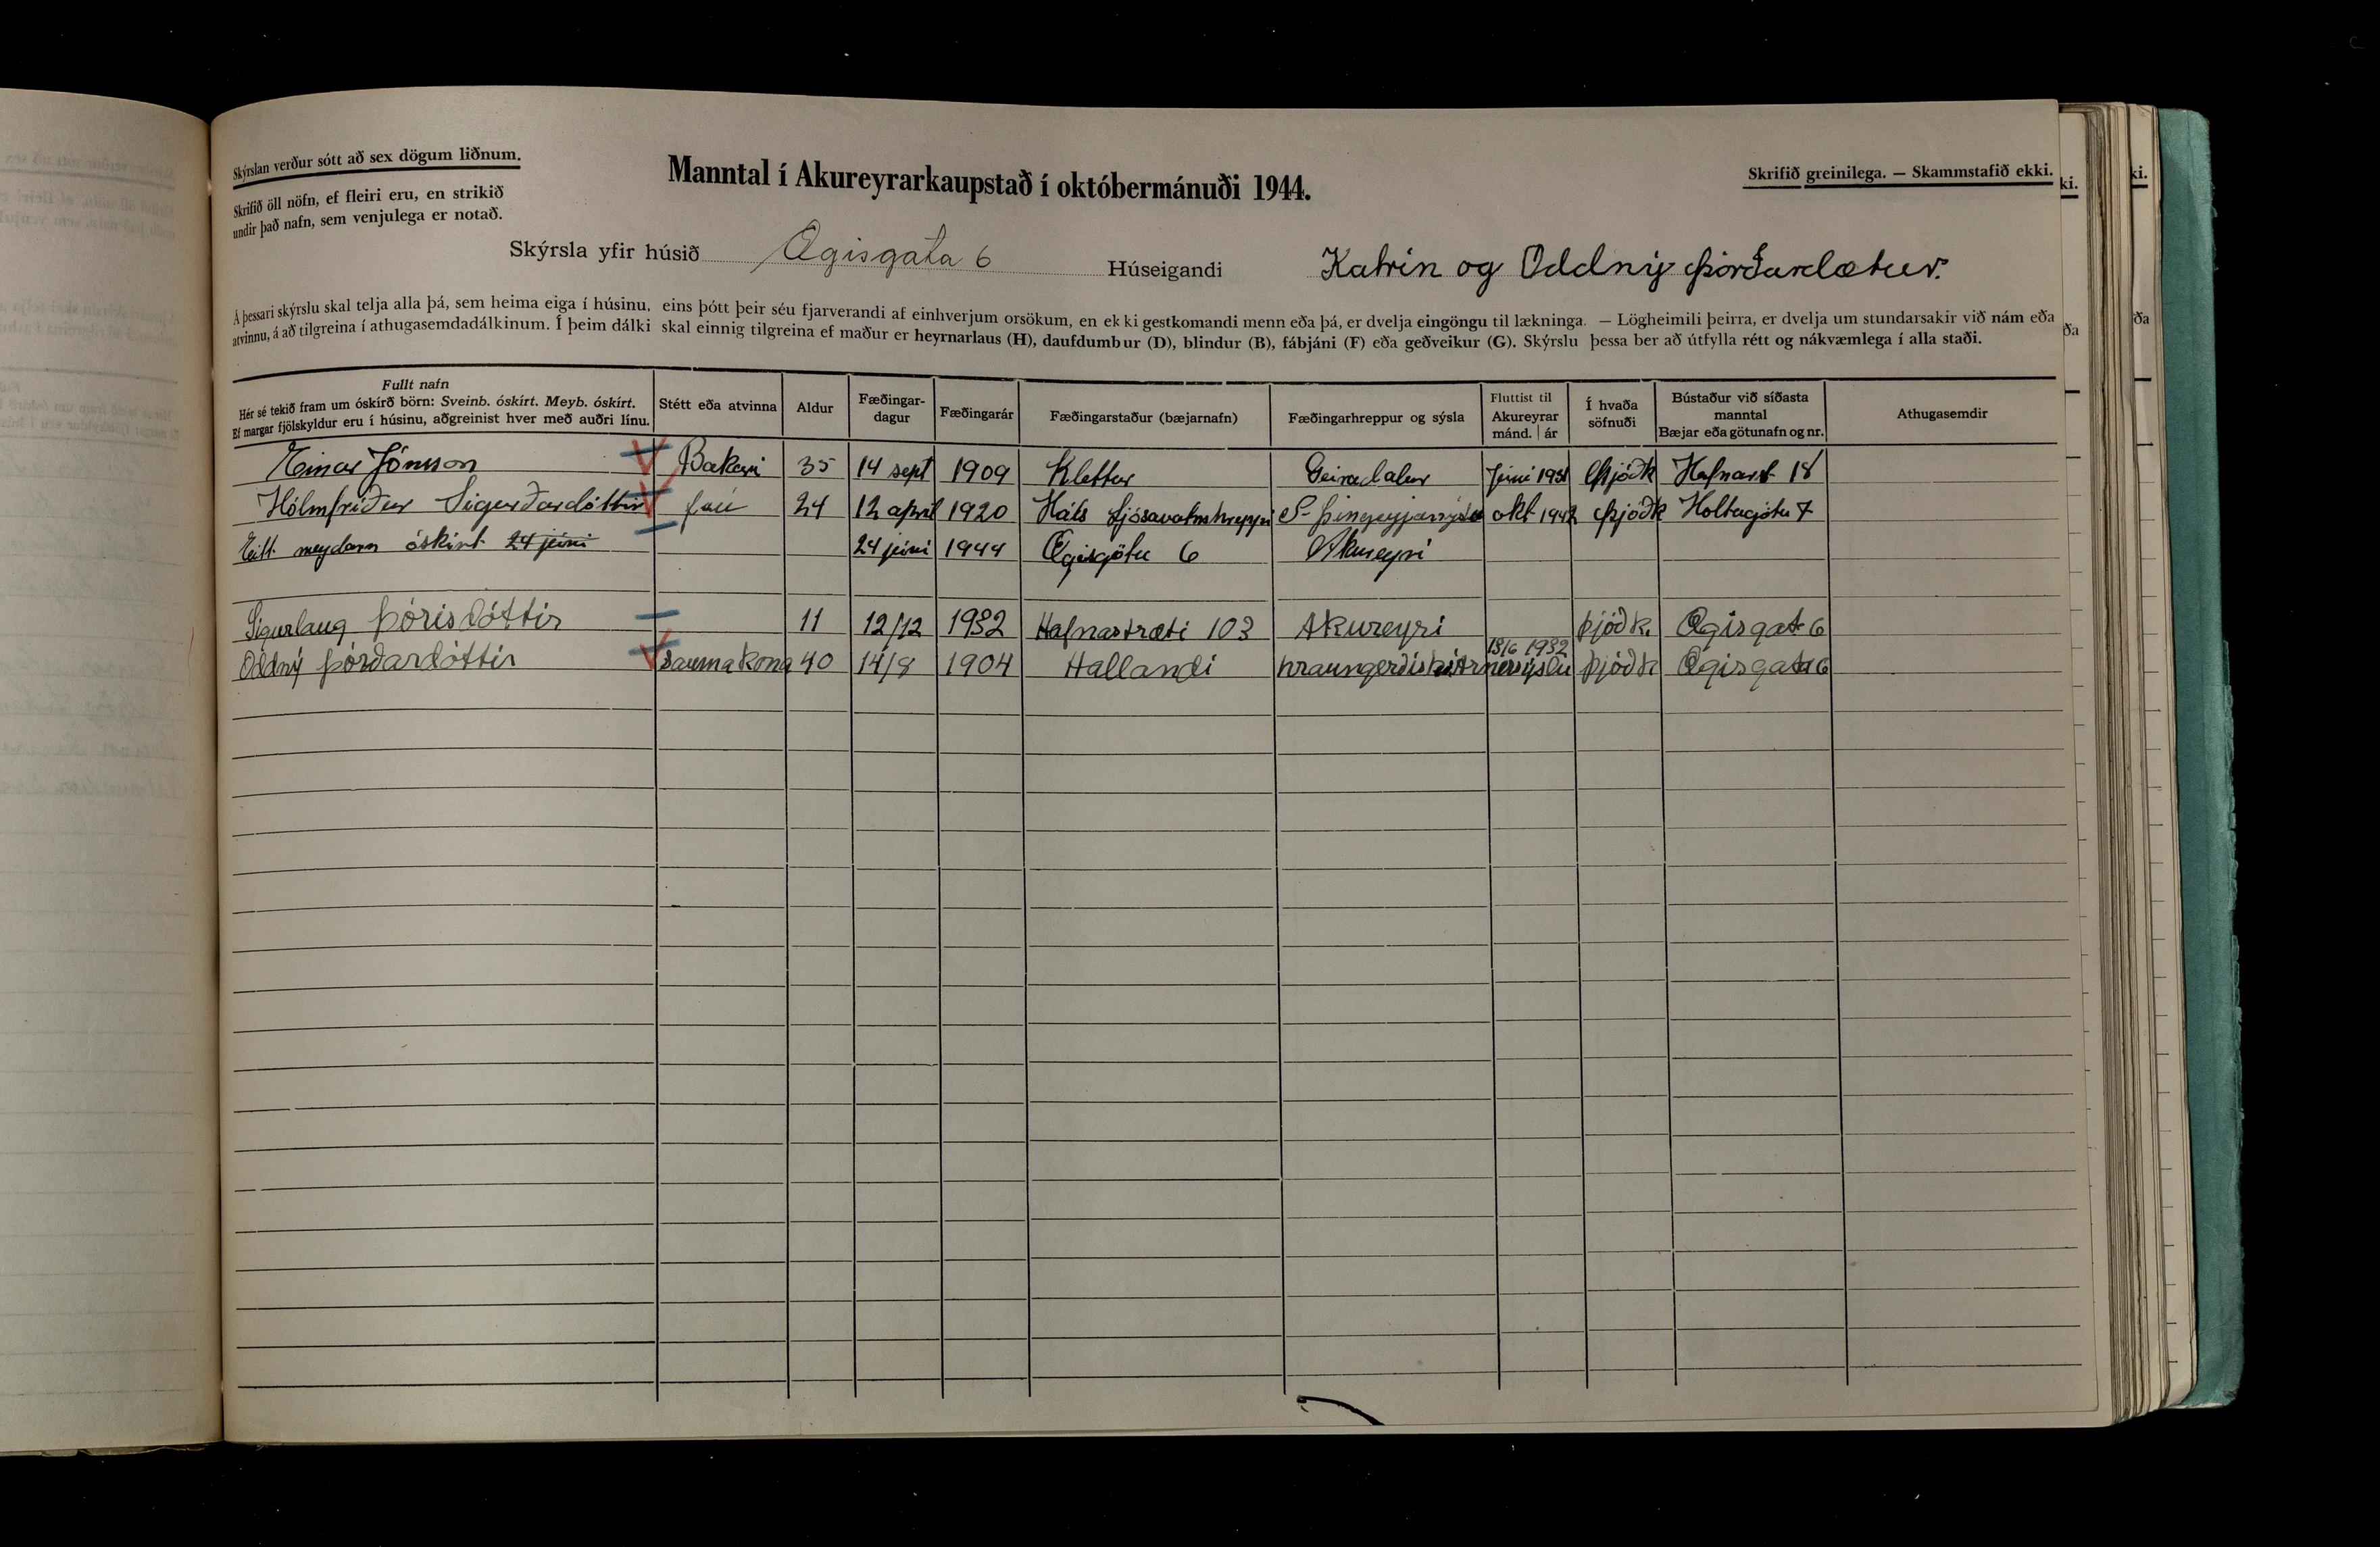 Skýrslan verður sótt að sex dögum liðnum.
Skrifið öll nöfn, ef fleiri eru, en strikið
undir það nafn, sem venjulega er notað.
Manntal í Akureyrarkaupstað í októbermánuði 1944.
Skrifið greinilega. — Skammstafið ekki.
Skýrsla yfir húsið Ægisgata 6 Húseigandi Katrín og Oddný Þórðardætur.
Á þessari skýrslu skal telja alla þá, sem heima eiga í húsinu, eins þótt þeir séu fjarverandi af einhverjum orsökum, en ekki gestkomandi menn eða þá, er dvelja eingöngu til lækninga. — Lögheimili þeirra, er dvelja um stundarsakir við nám eða
atvinnu, á að tilgreina í athugasemdadálkinum. Í þeim dálki skal einnig tilgreina ef maður er heyrnarlaus (H), daufdumbur (D), blindur (B), fábjáni (F) eða geðveikur (G). Skýrslu þessa ber að útfylla rétt og nákvæmlega í alla staði.
Fullt nafn
Hér sé tekið fram um óskírð börn: Sveinb. óskírt. Meyb. óskírt.
Ef margar fjölskyldur eru í húsinu, aðgreinist hver með auðri línu.
Stétt eða atvinna
Aldur
Fæðingar-
dagur
Fæðingarár
Fæðingarstaður (bæjarnafn)
Fæðingarhreppur og sýsla
Fluttist til
Akureyrar
mánd. | ár
Í hvaða
söfnuði
Bústaður við síðasta
manntal
Bæjar eða götunafn og nr.
Athugasemdir
Einar Jónsson Bakari 35 14 sept 1909 Klettur Geiradalur Júní 1931 Þjóðk Hafnarst 18
Hólmfríður Sigurðardóttir frú 24 12 apríl 1920 Háls Ljósavatnshreppi S-Þingeyjarsýslu okt 1942 Þjóðk Holtagötu 7
Eitt meybarn óskírt 24 júní 24 júní 1944 Ægisgötu 6 Akureyri
Sigurlaug Þórisdóttir 11 12/12 1932 Hafnastræti 103 Akureyri þjóðk. Ægisgat 6
Oddný Þórðardóttir saumakona 40 14/8 1904 Hallandi hraungerðish Árnessýslu 15/6 1932 þjóðk Ægisgata 6
ki.
ki.
ða
ða